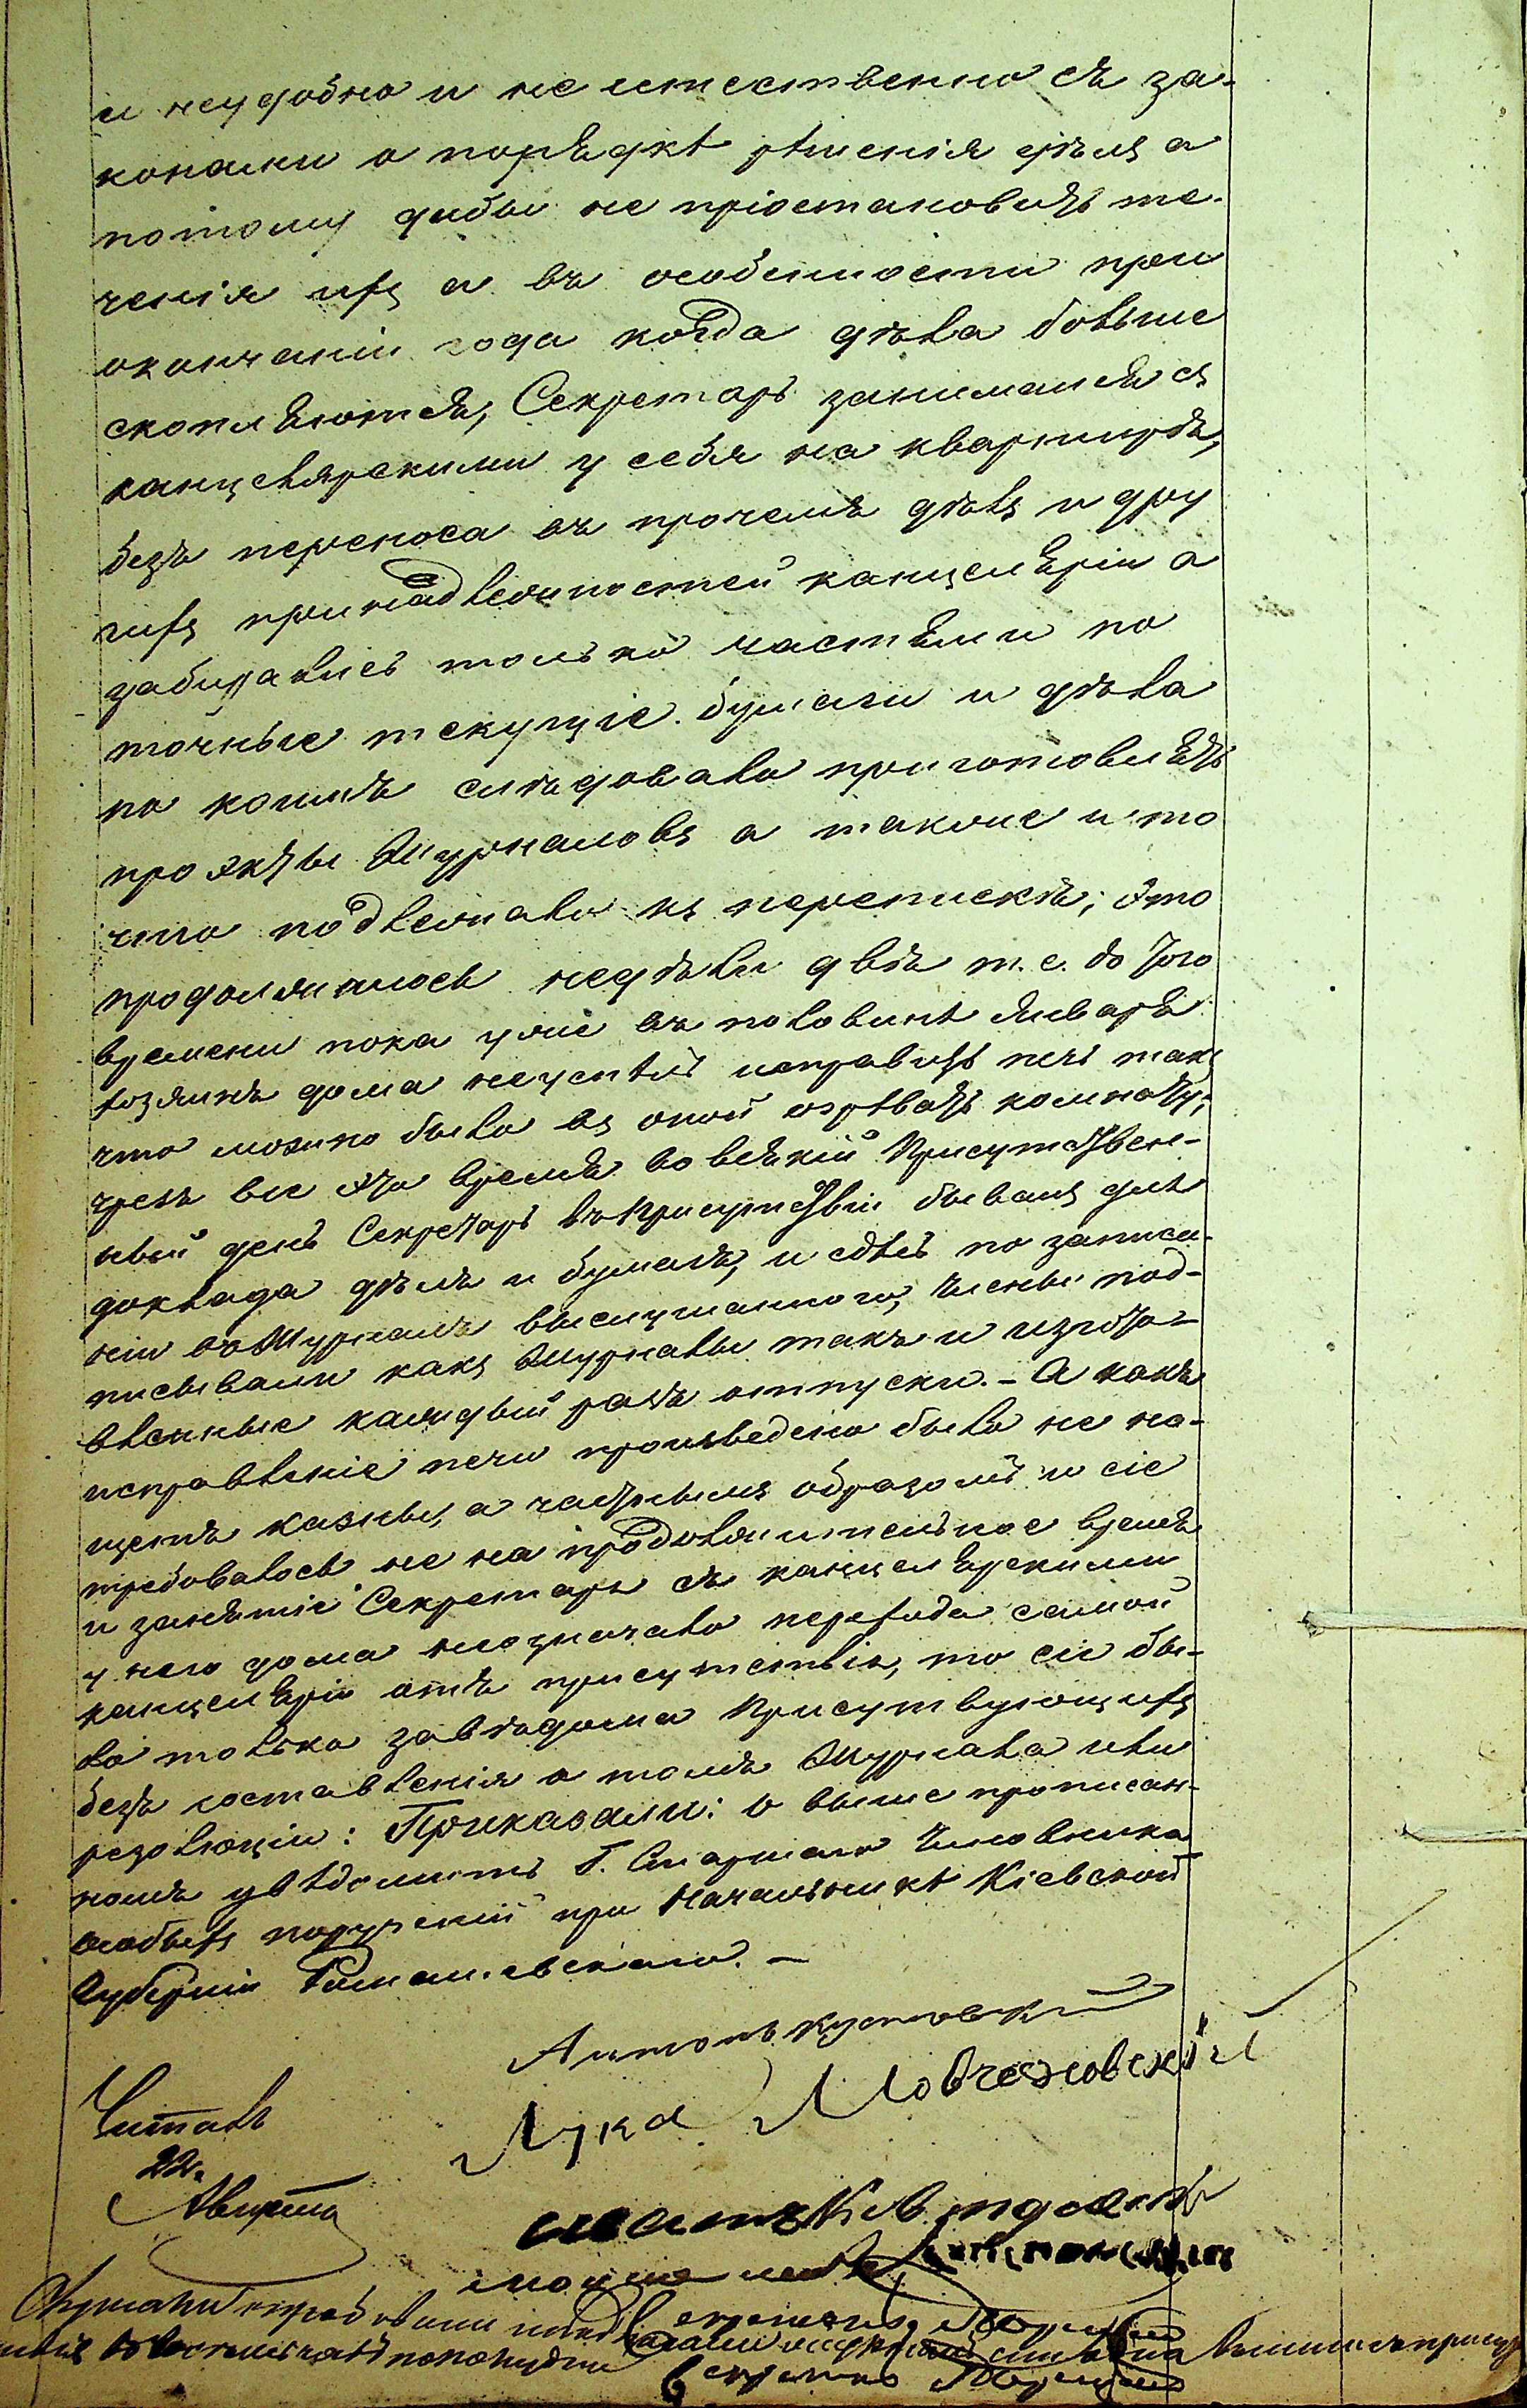 и неудобно и не естественно съ за-
конами о порядкѣ рѣшенія дѣлъ а
потому дабы не пріостановить те-
ченія ихъ а въ особенности при
окончаніи года когда дѣла больше
скопляются, Секретарь занимался съ
канцелярскими у себя на квартирѣ,
безъ переноса въ прочемъ дѣлъ и дру
гихъ принадлежностей канцеляріи а
забирались только частями по
точные текущіе бумаги и дѣла
по коимъ слѣдовало приготовлять
проэкты Журналовъ а также и то
что подлежало къ перепискѣ; Это
продолжалось недѣли двѣ т. е. до того
времени пока уже въ половинѣ Января
хозяинъ дома неуспѣлъ исправить печь такъ
что можно было въ оной согрѣвать комнату;
чрезъ все это время во всякій Присутствен-
ный день Секретарь въ присутствіи бывалъ для
доклада дѣлъ и бумагъ, и здѣсь по записа-
ніи въ Журналъ выслушаннаго, Члены под-
писывали какъ Журналы такъ и изгото-
вленные каждый разъ отпуски. – А какъ
исправленіе печи произведено было не на
щетъ казны, а частнымъ образомъ и сіе
требовалось не на продолжительное время
и занятіе Секретаря съ канцелярскими
у него дома неозначало перехода самой
канцеляріи отъ присутствія, то сіе бы-
ло только завѣдома Присутвующихъ
безъ составленія о томъ Журнала или
резолюціи: Приказали: о выше прописан-
номъ увѣдомить Г. Старшаго Чиновника
особыхъ порученій при Начальникѣ Кіевской
Губерніи Романовскаго. –
Антонъ Кустовскій
Лука Мовчановскій
Читалъ
22.
Августа
Секретарь